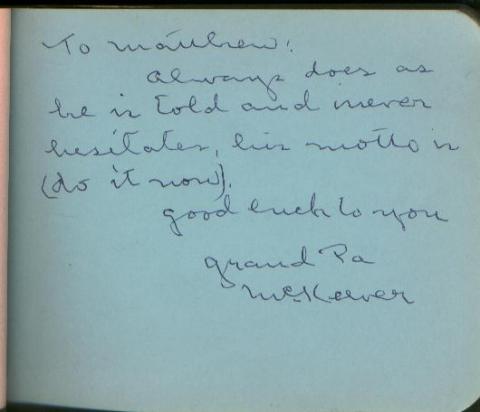 To Matthew!
always does as
he is told and never
hesitates, his motto is
(do it now).
good luck to you
grand Pa
McKeever